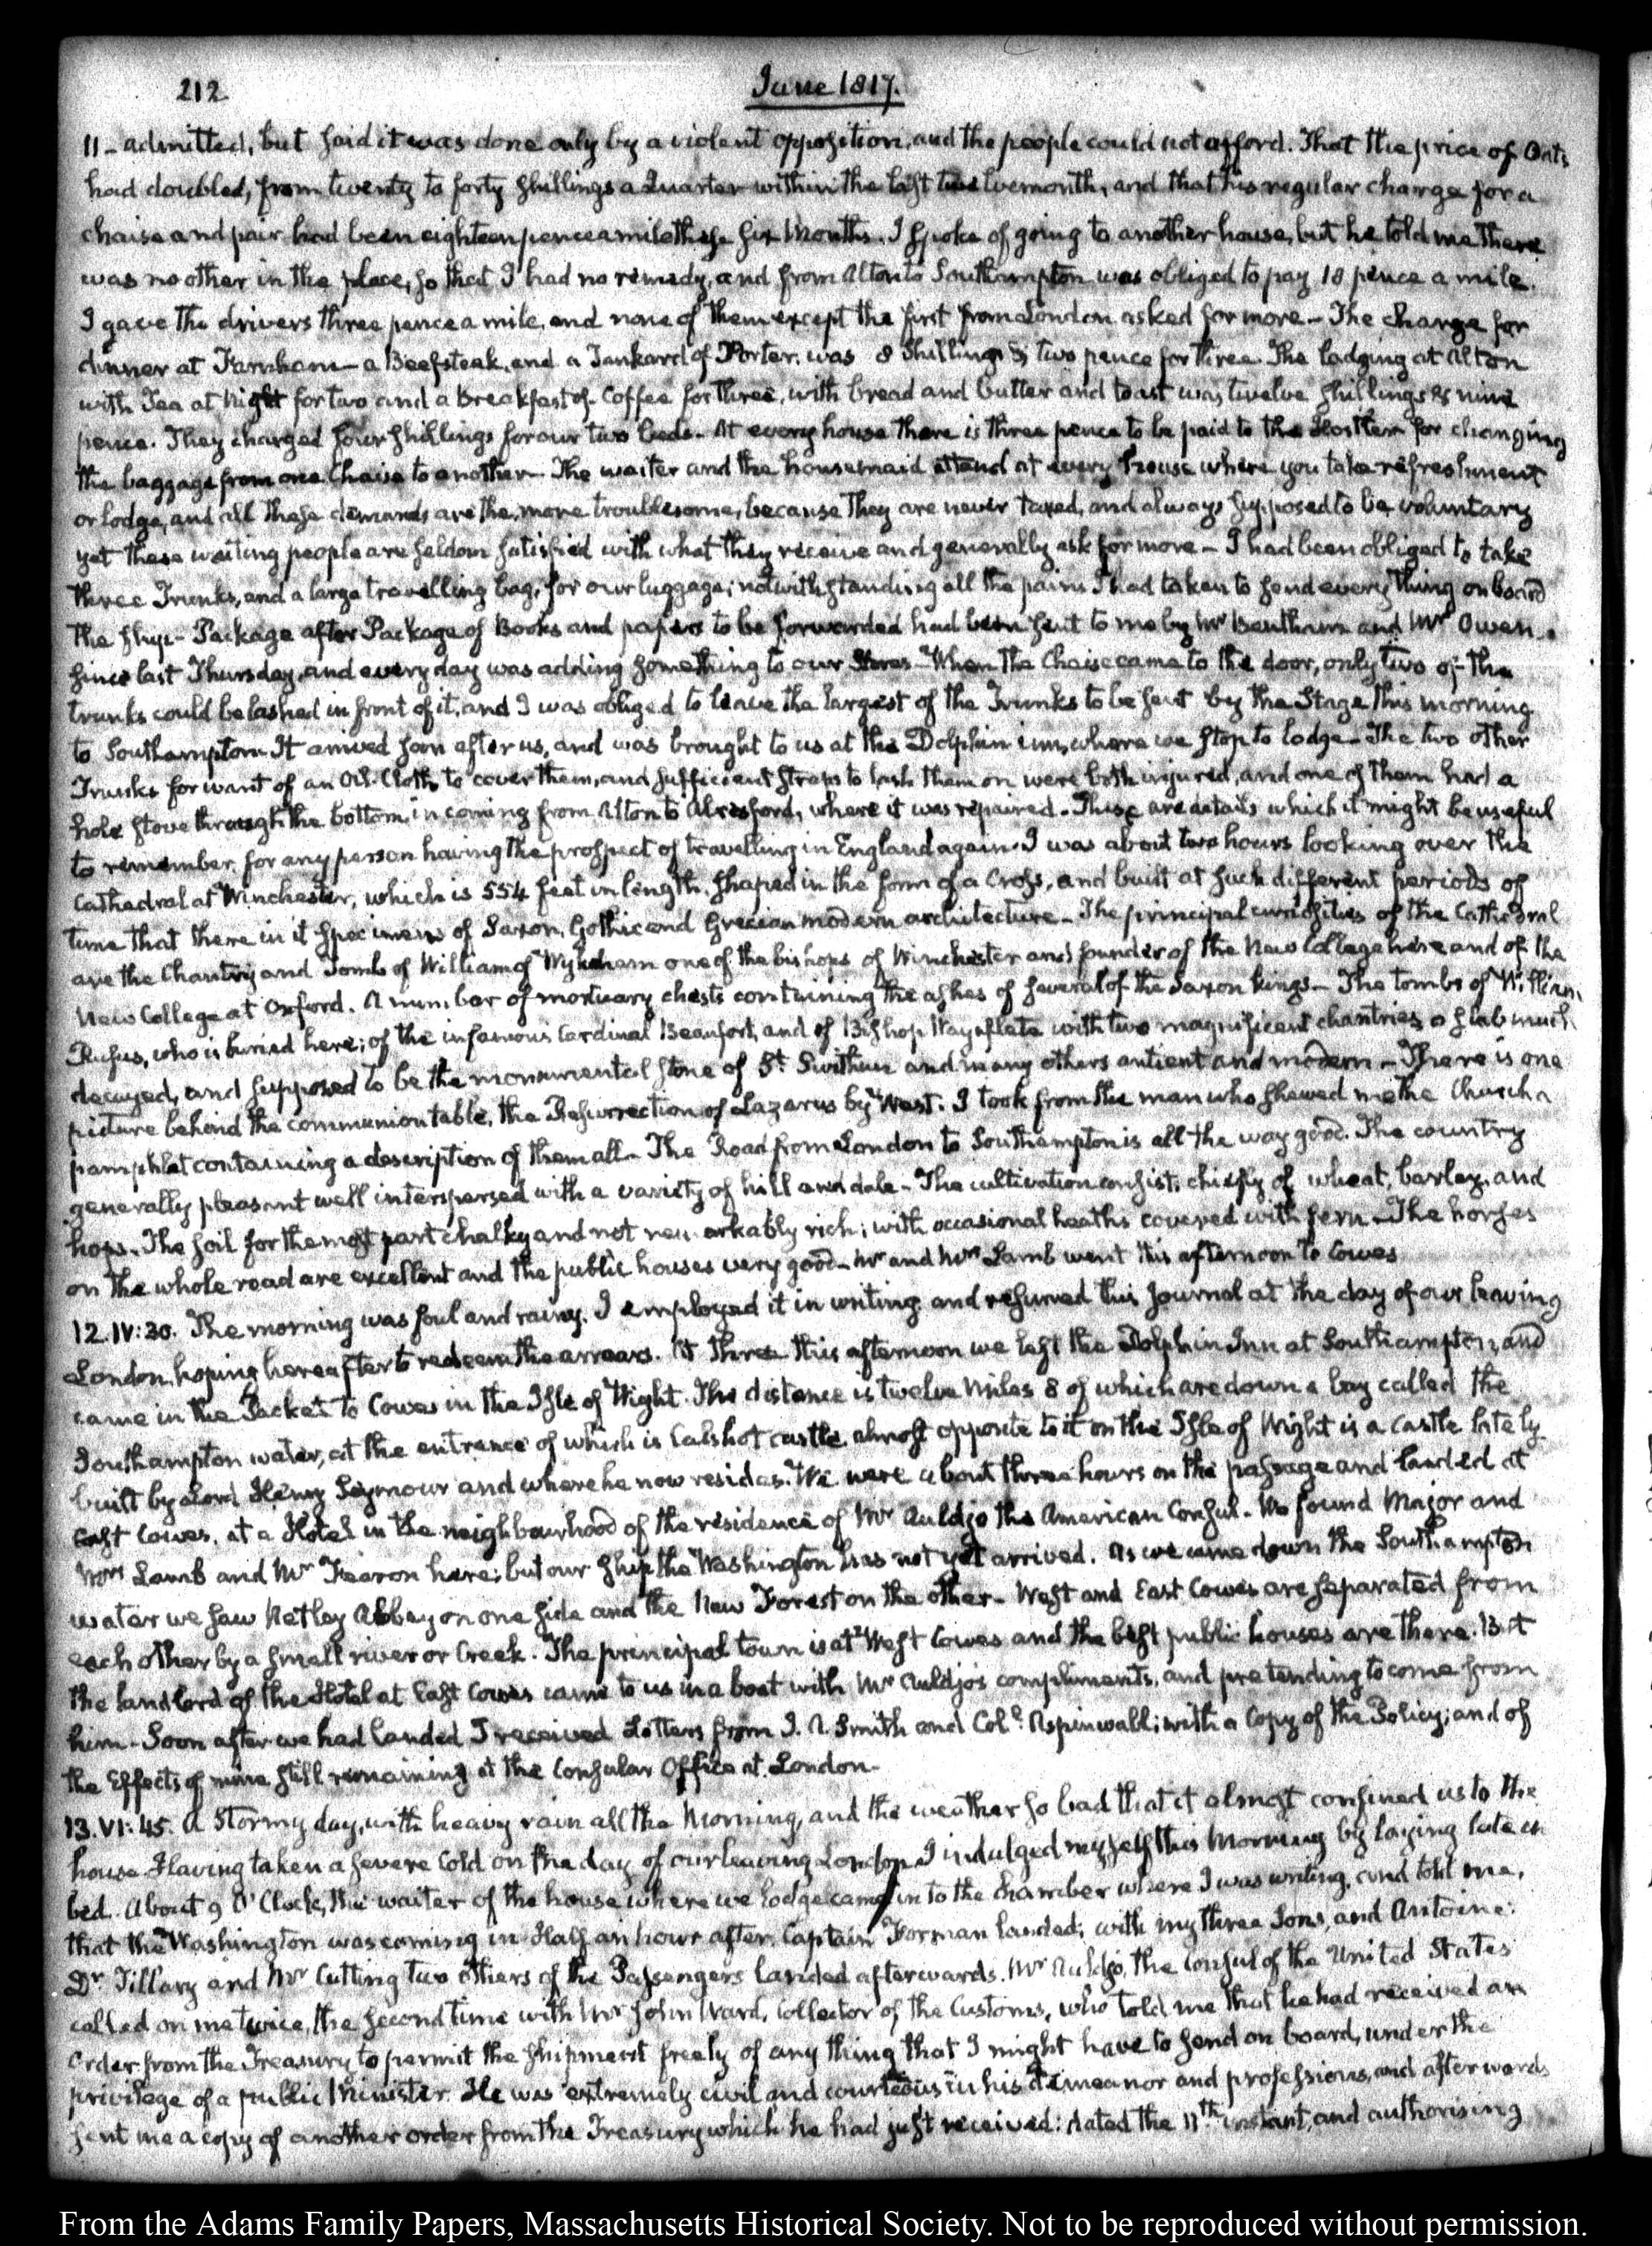 212
June 1817.
11 - admitted, but said it was done only by a violent opposition, and the people could not afford. That the price of Oats
had doubled, from twenty to forty shillings a Quarter within the last twelvemonth, and that his regular charge for a
chaise and pair had been eighteen pence a mile these six Months. I spoke of going to another house, but he told me there
was no other in the place, so that I had no remedy, and from Alton to Southampton was obliged to pay 18 pence a mile.
I gave the drivers three pence a mile, and none of them except the first from London asked for more - The charge for
dinner at Farnham - a Beefsteak, and a Tankard of Porter, was 8 Shillings & two pence for three. The lodging at Alton
with Tea at Night for two and a Breakfast of Coffee for three, with bread and butter and toast was twelve shillings & nine
pence. They charged four shillings for our two beds - At every house there is three pence to be paid to the Hostler for changing
the baggage from one Chaise to another - The waiter and the housemaid attend at every house where you take refreshment
or lodge, and all these demands are the more troublesome, because they are never taxed, and always supposed to be voluntary
yet these waiting people are seldom satisfied with what they receive and generally ask for more - I had been obliged to take
three Trunks, and a large travelling bag, for our luggage; notwithstanding all the pains I had taken to send every thing on board
the ship - Package after Package of Books and papers to be forwarded had been sent to me by Mr Bentham and Mr Owen,
since last Thursday, and every day was adding something to our Stores - When the Chaise came to the door, only two of the
trunks could be lashed in front of it, and I was obliged to leave the largest of the Trunks to be sent by the Stage this morning
to Southampton. It arrived soon after us, and was brought to us at the Dolphin inn, where we stop to lodge - The two other
Trunks for want of an Oil-Cloth to cover them, and sufficient straps to lash them on were both injured, and one of them had a
hole stove through the bottom, in coming from Alton to Alresford, where it was repaired. These are details which it might be useful
to remember, for any person having the prospect of travelling in England again. I was about two hours looking over the
Cathedral at Winchester, which is 554 feet in length, shaped in the form of a Cross, and built at such different periods of
time that there in it specimens of Saxon, Gothic and Grecian modern architecture - The principal curiosities of the Cathedral
are the Chantry and Tomb of William of Wykeham one of the bishops of Winchester and founder of the New College here and of the
New College at Oxford. A number of mortuary chests containing the ashes of several of the Saxon kings - The tombs of William
Rufus, who is buried here; of the infamous Cardinal Beaufort, and of Bishop Waynflete with two magnificent chantries, a slab much
decayed, and supposed to be the monumental stone of St. Swithun and many others antient and modern - There is one
picture behind the communion table, the Resurrection of Lazarus by West. I took from the man who shewed me the Church a
pamphlet containing a description of them all - The Road from London to Southampton is all the way good. The country
generally pleasant well interspersed with a variety of hill and dale - The cultivation consists chiefly of wheat, barley, and
hops. The soil for the most part chalky and not remarkably rich; with occasional heaths covered with fern - The horses
on the whole road are excellent and the public houses very good - Mr and Mrs Lamb went this afternoon to Cowes
12. IV:30. The morning was foul and rainy. I employed it in writing and resumed this journal at the day of our leaving
London, hoping hereafter to redeem the arrears. At three this afternoon we left the Dolphin Inn at Southampton, and
came in the Packet to Cowes in the Isle of Wight. The distance is twelve Miles 8 of which are down a bay called the
Southampton water, at the entrance of which is Calshot castle, almost opposite to it on the Isle of Wight is a castle lately
built by Lord Henry Seymour and where he now resides. We were about three hours on the passage and landed at
East Cowes, at a Hotel in the neighbourhood of the residence of Mr Auldjo the American Consul. We found Major and
Mrs Lamb and Mr Fearon here; but our ship the Washington has not yet arrived. As we came down the Southampton
water we saw Netley Abbey on one side and the New Forest on the other - West and East Cowes are separated from
each other by a small river or Creek. The principal town is at West Cowes and the best public houses are there. But
the landlord of the Hotel at East Cowes came to us in a boat with Mr Auldjo's compliments, and pretending to come from
him - Soon after we had landed I received Letters from J. A. Smith and Coll. Aspinwall; with a Copy of the Policy; and of
the Effects of mine still remaining at the Consular Office at London.
13. VI:45. A Stormy day, with heavy rain all the Morning, and the weather so bad that it almost confined us to the
house. Having taken a severe Cold on the day of our leaving London, I indulged myself this Morning by laying late in
bed. About 9 O'Clock, the waiter of the house where we lodge came in to the chamber where I was writing, and told me,
that the Washington was coming in. Half an hour after, Captain Forman landed; with my three Sons, and Antoine:
Dr. Tillary and Mr Cutting two others of the Passengers landed afterwards. Mr Auldjo, the Consul of the United States
called on me twice, the second time with Mr John Ward, Collector of the Customs, who told me that he had received an
Order from the Treasury to permit the shipment freely of any thing that I might have to send on board, under the
privilege of a public Minister. He was extremely civil and courteous in his demeanor and professions, and afterwards
sent me a copy of another order from the Treasury which he had just received: dated the 11th instant, and authorising
From the Adams Family Papers, Massachusetts Historical Society. Not to be reproduced without permission.